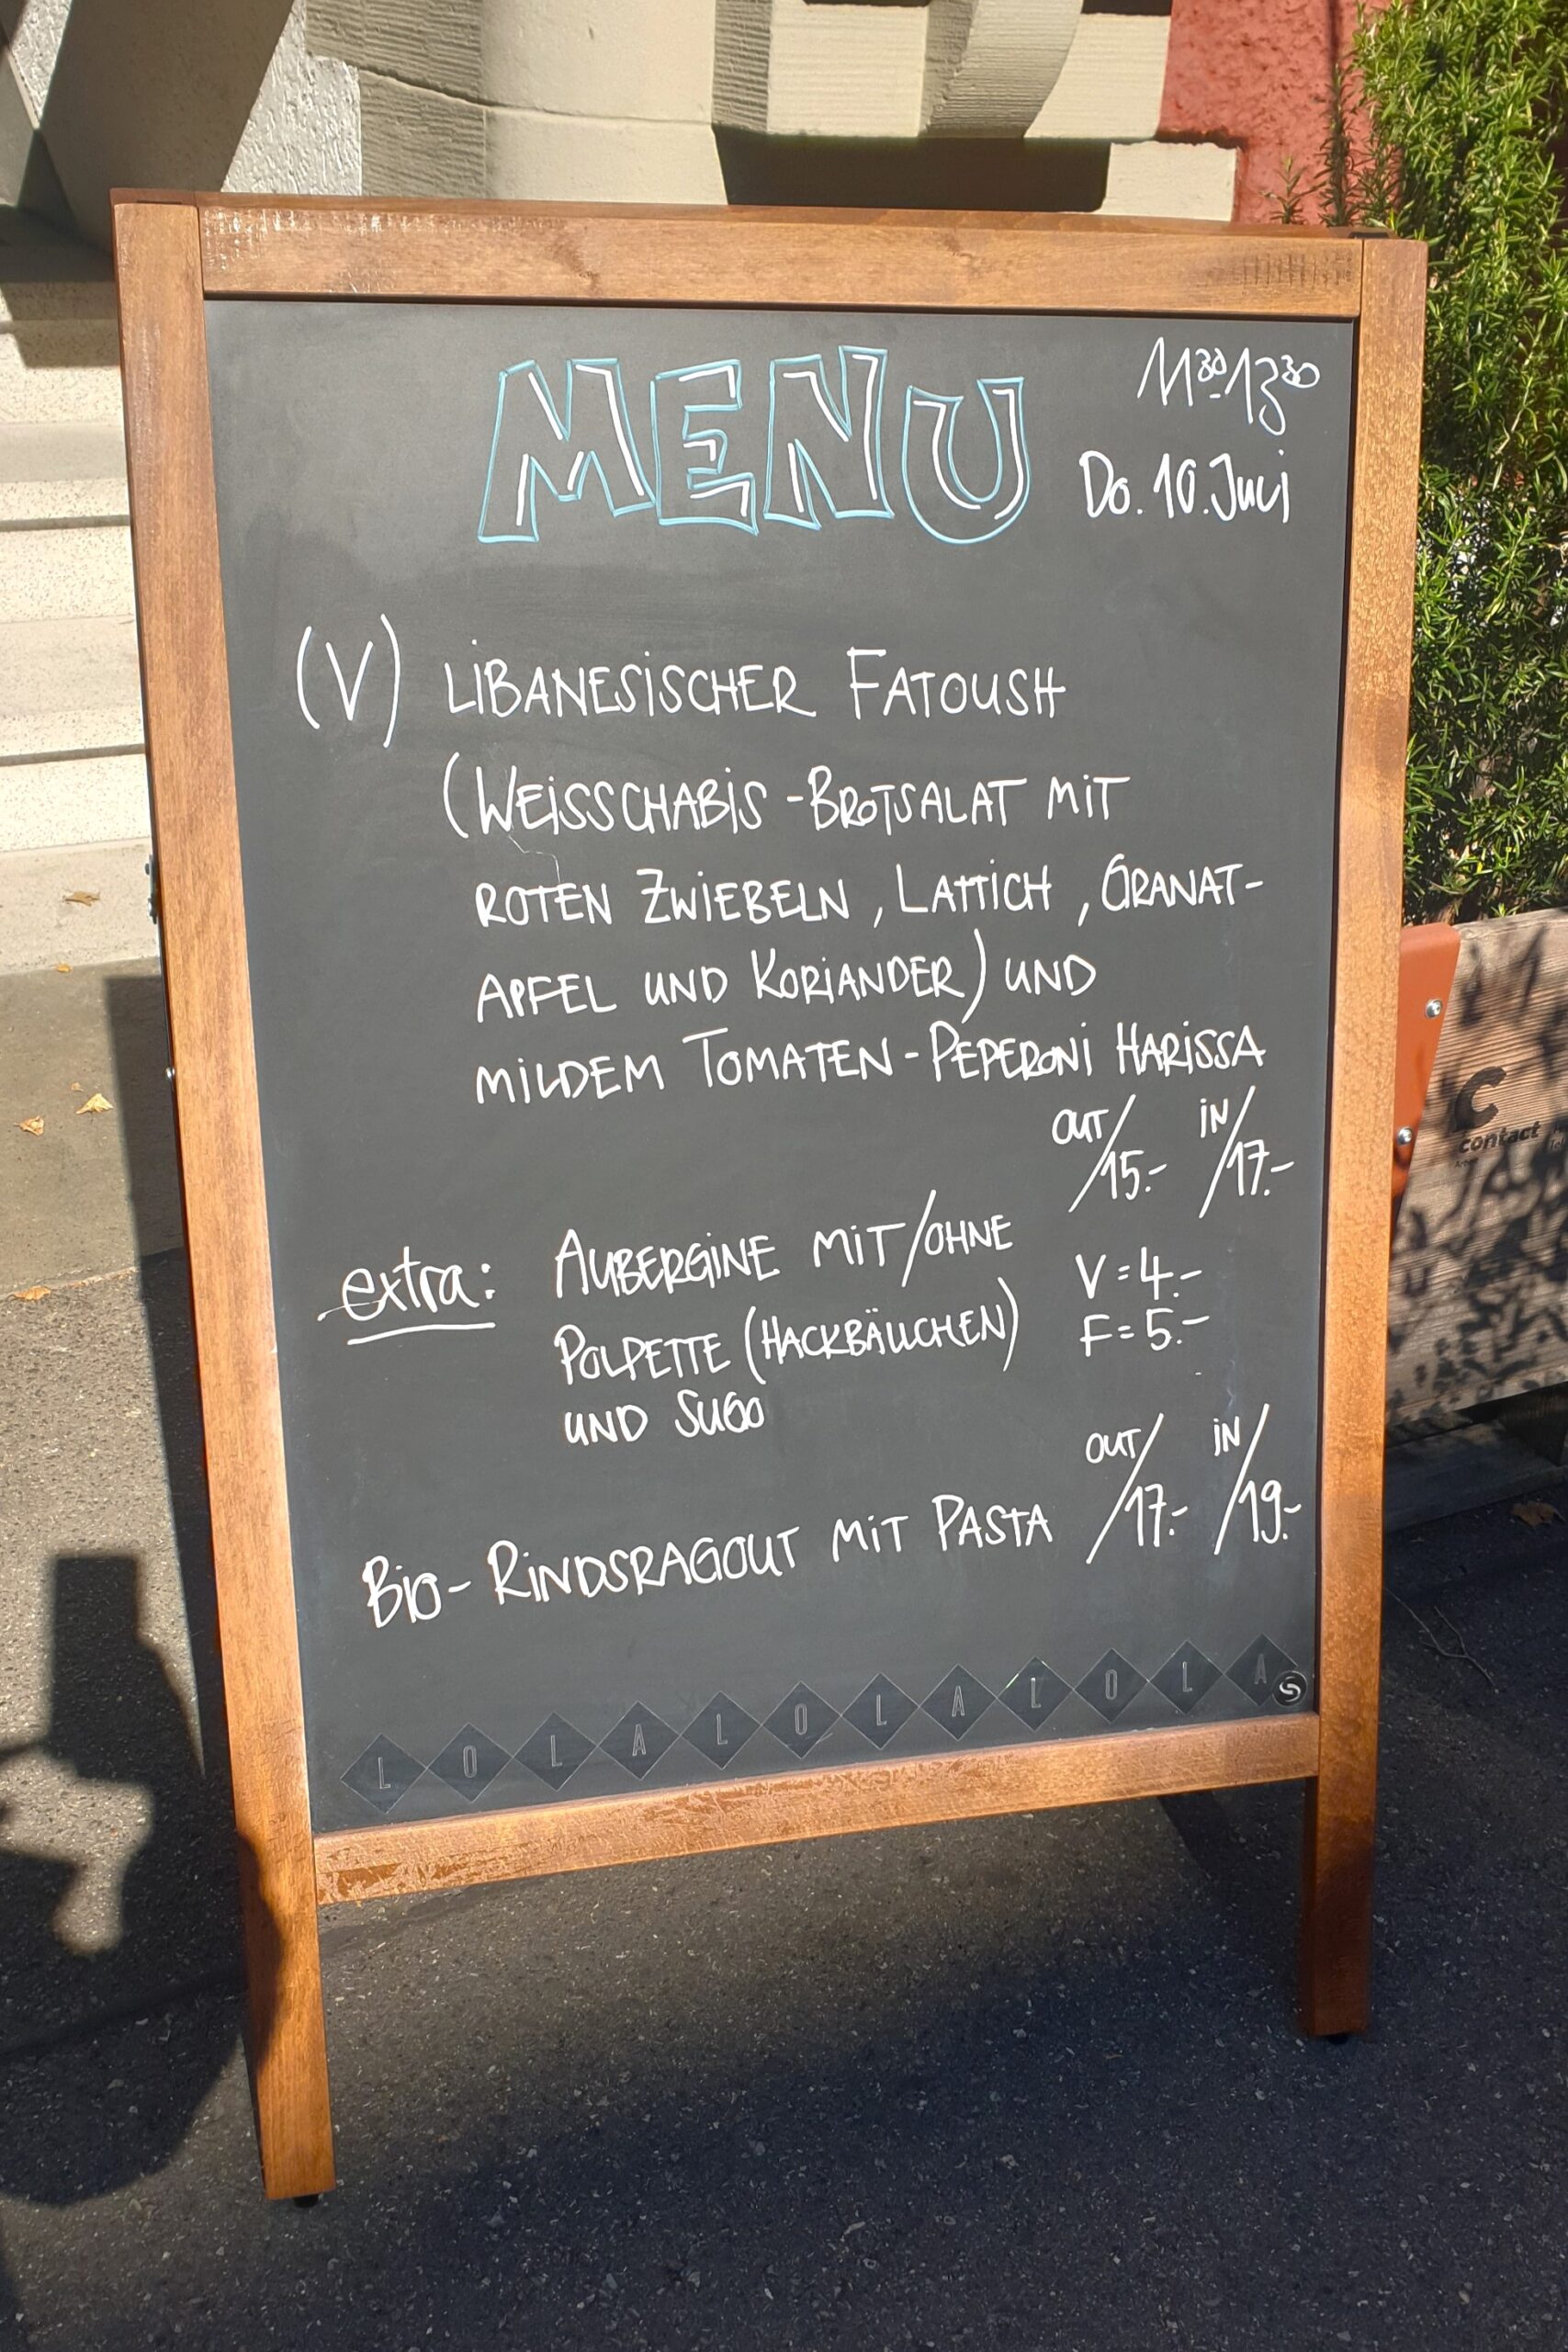 MENU
11³⁰-13³⁰
Do. 10. Juli
(V) LIBANESISCHER FATOUSH
(WEISSCHABIS-BROTSALAT MIT
ROTEN ZWIEBELN, LATTICH, GRANAT-
APFEL UND KORIANDER) UND
MILDEM TOMATEN-PEPERONI HARISSA
OUT/15.- IN/17.-
extra: AUBERGINE MIT/OHNE
POLPETTE (HACKBÄLLCHEN)
UND SUGO
V=4.-
F=5.-
BIO-RINDSRAGOUT MIT PASTA OUT/17.- IN/19.-
LOLALOLALOLA
contact